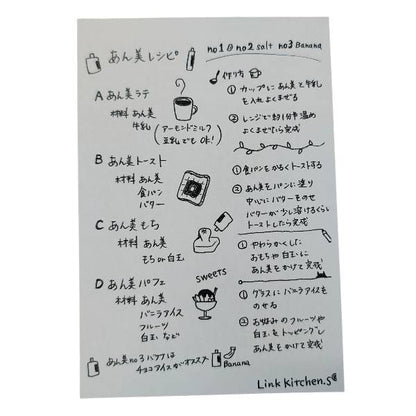 あん美レシピ
no1 @ no2 salt no3 Banana
作り方
A あん美ラテ
材料 あん美
牛乳
(アーモンドミルク
豆乳でも OK!)
① カップに あん美と牛乳
を入れよくまぜる
② レンジで約1分半温め
よくまぜたら完成
B あん美トースト
材料 あん美
食パン
バター
① 食パンをかるくトーストする
② あん美をパンに塗り
中心にバターをのせ
バターが少し溶けるくらい
トーストしたら完成
C あん美もち
材料 あん美
もち or 白玉
① やわらかくした
おもちや白玉に
あん美をかけて完成
D あん美パフェ
sweets
材料 あん美
バニラアイス
フルーツ
白玉 など
① グラスにバニラアイスを
のせる
② お好みのフルーツや
白玉をトッピングし
あん美をかけて完成
あん美no3バナナは
チョコアイスがオススメ
Banana
Link Kitchen.S